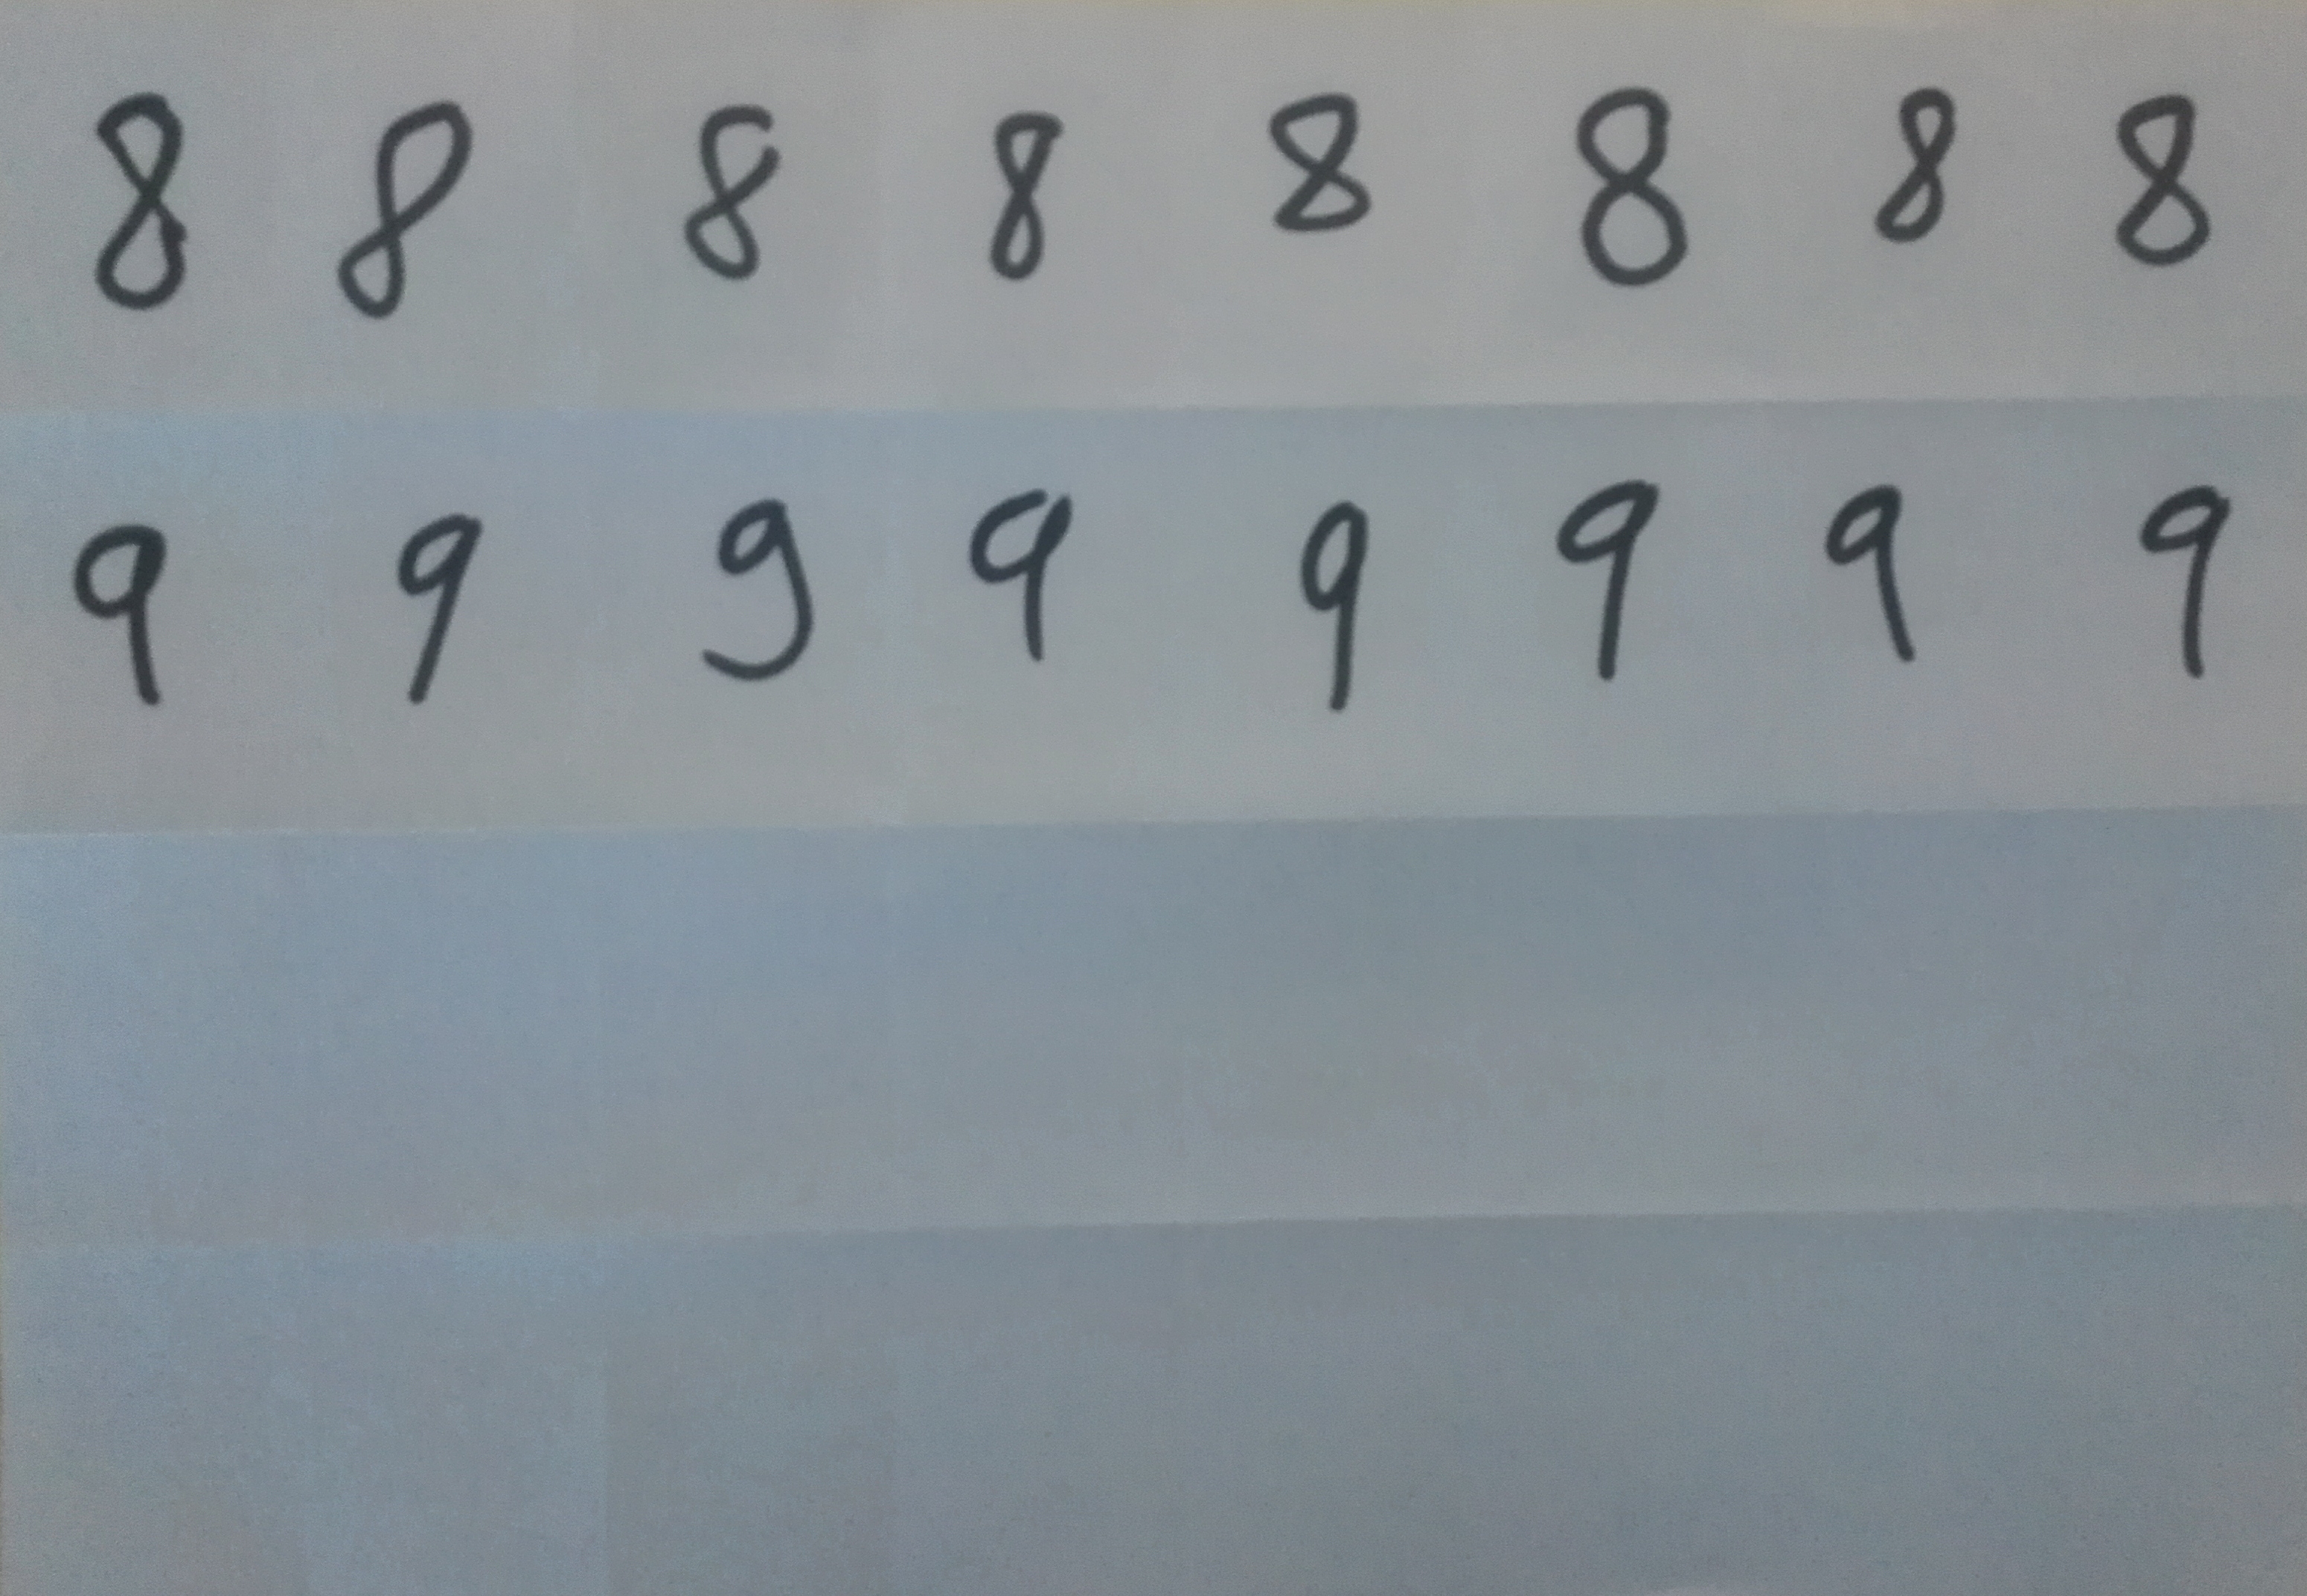 8 8 8 8 8 8 8 8
9 9 9 9 9 9 9 9